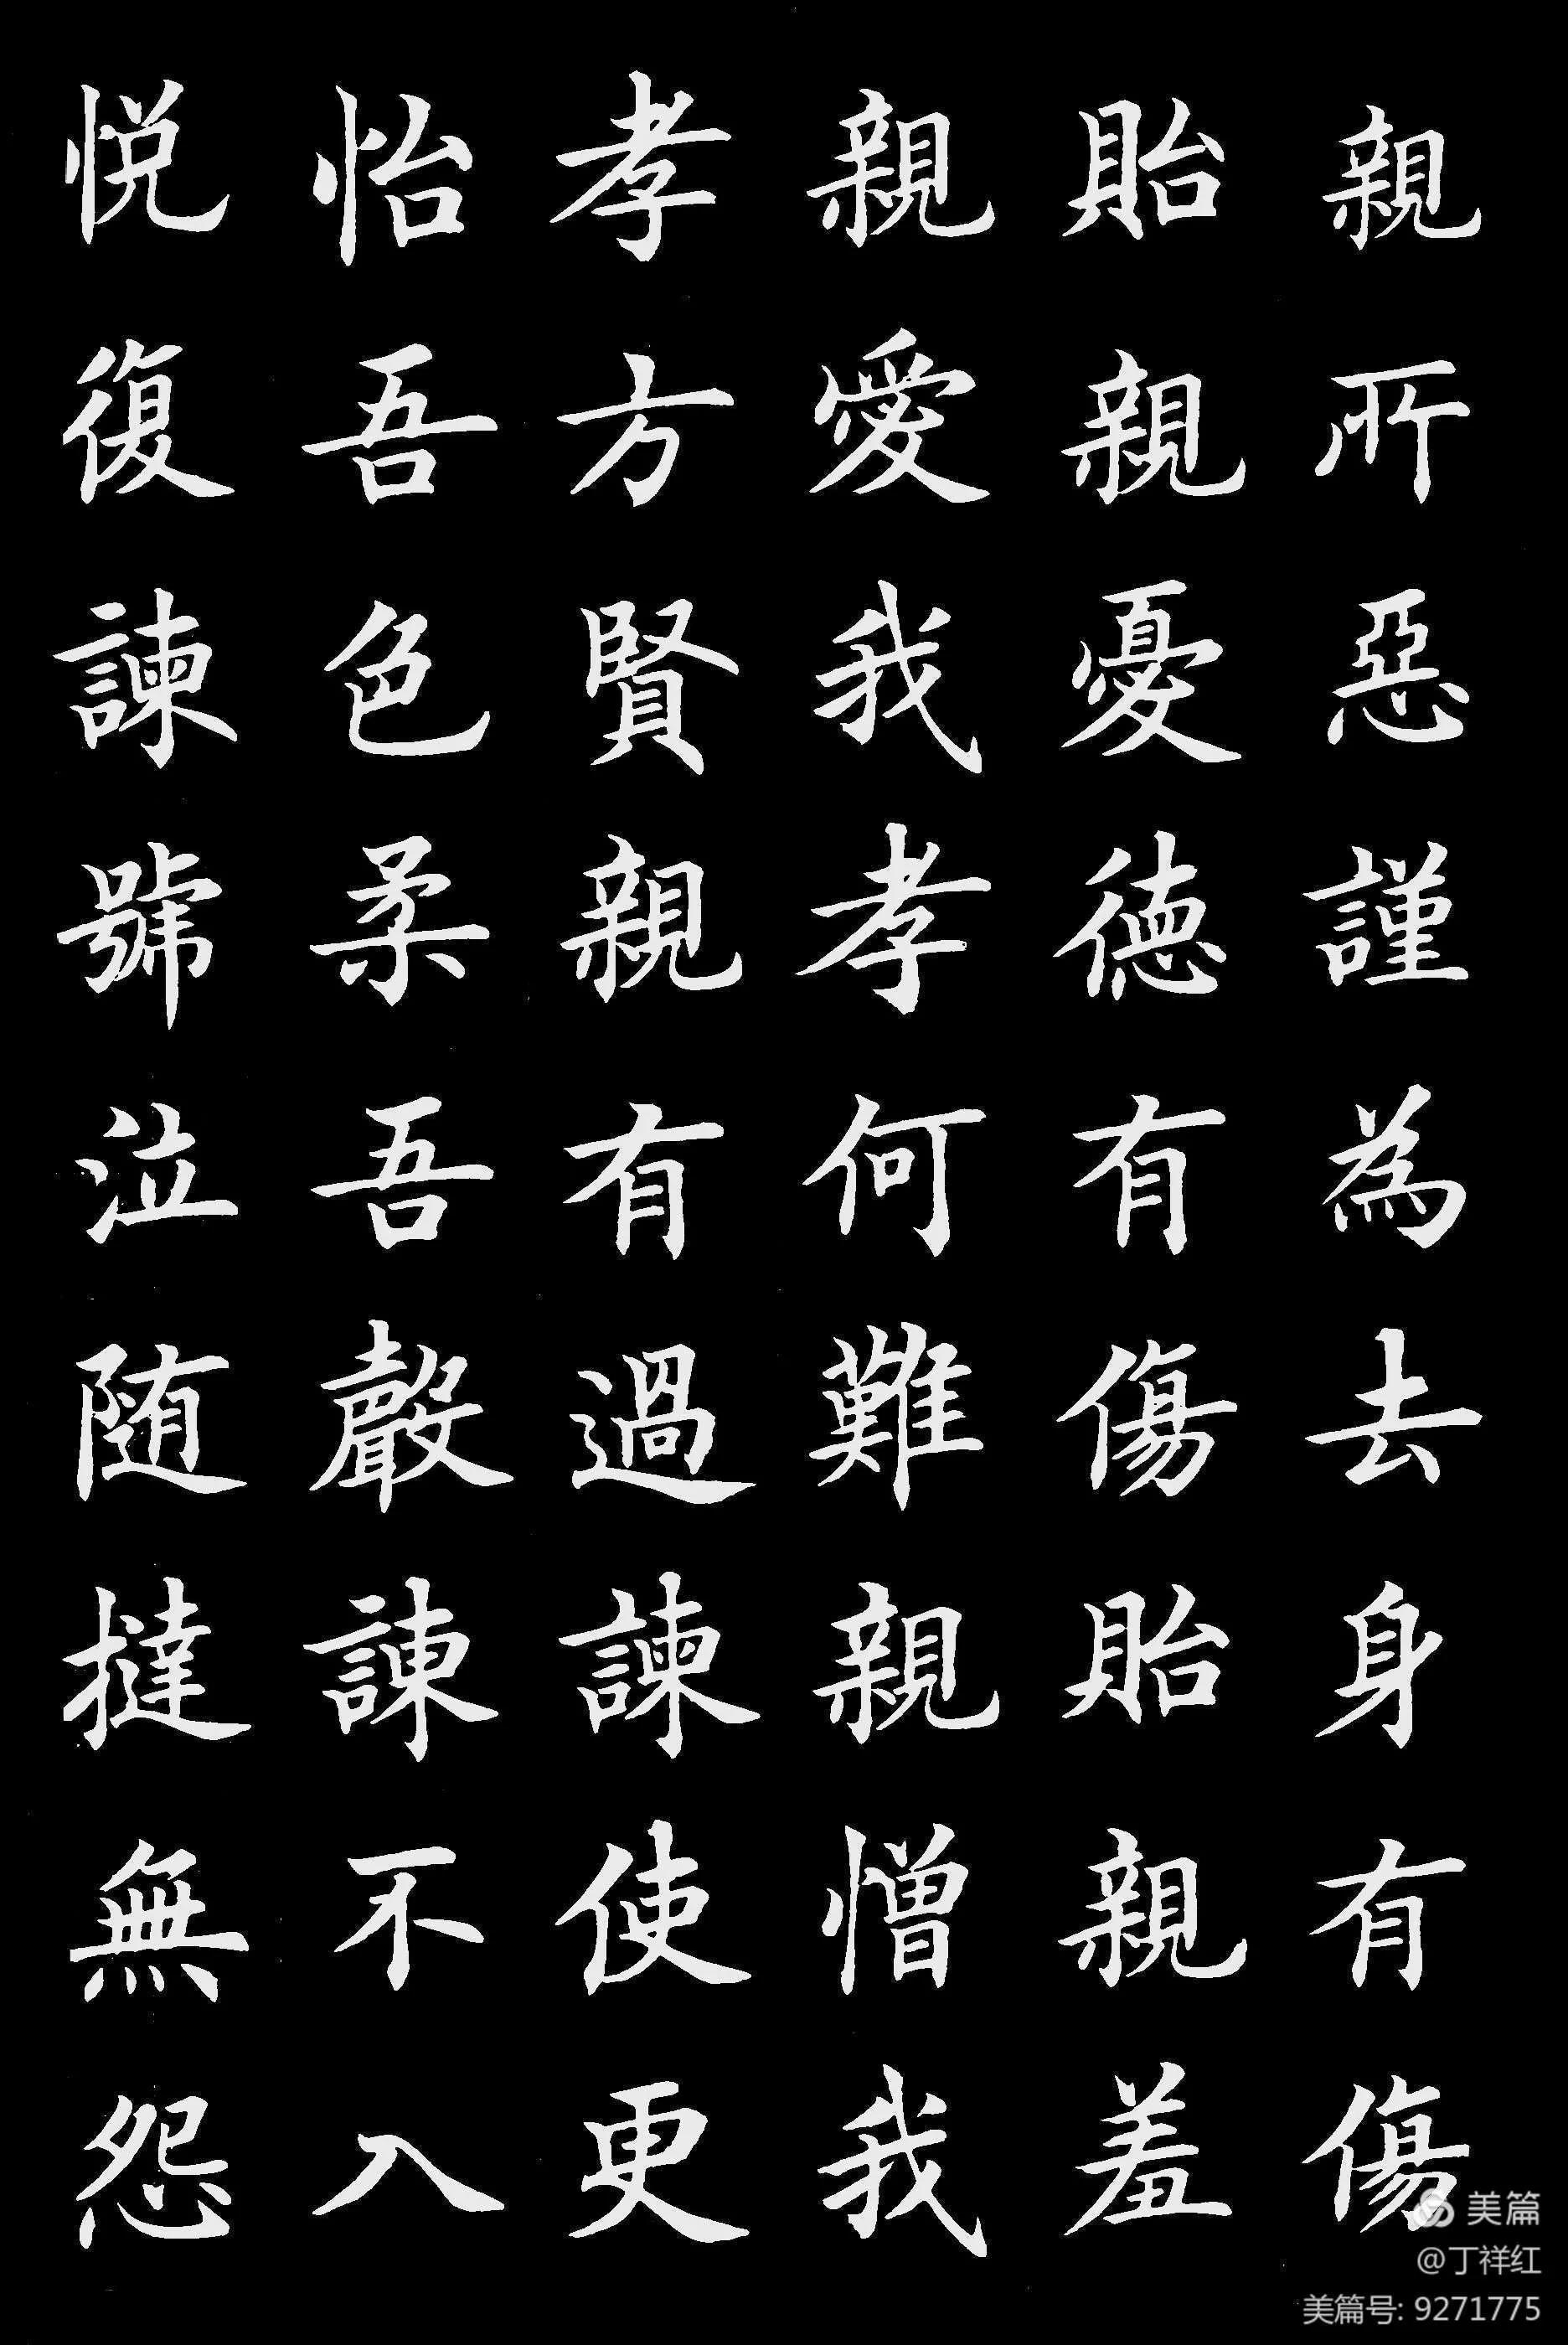 親所惡謹為去身有傷
貽親憂德有傷貽親羞
親愛我孝何難親憎我
孝方賢親有過諫使更
怡吾色柔吾聲諫不入
悦復諫號泣随撻無怨
美篇
@丁祥红
美篇号: 9271775